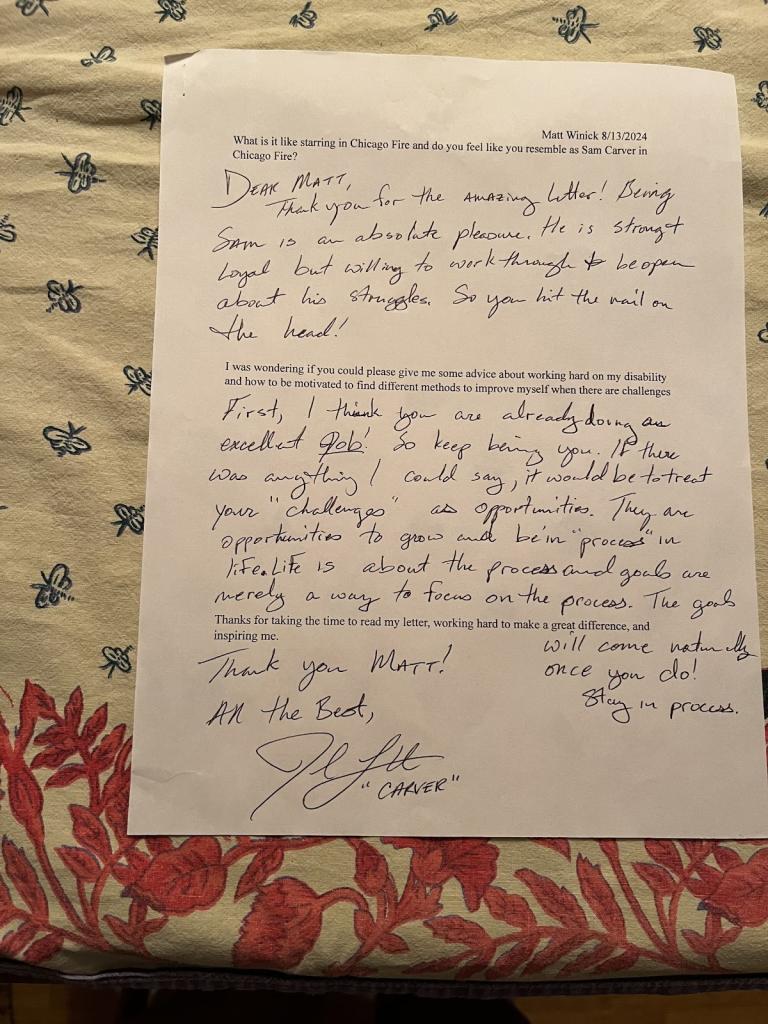 Matt Winick 8/13/2024
What is it like starring in Chicago Fire and do you feel like you resemble as Sam Carver in
Chicago Fire?
DEAR MATT,
Thank you for the AMAZING letter! Being
Sam is an absolute pleasure. He is strong +
Loyal but willing to work through + be open
about his struggles. So you hit the nail on
the head!
I was wondering if you could please give me some advice about working hard on my disability
and how to be motivated to find different methods to improve myself when there are challenges
First, I think you are already doing an
excellent Job! So keep being you. If there
was anything I could say, it would be to treat
your "challenges" as opportunities. They are
opportunities to grow and be in "process" in
life. Life is about the process and goals are
merely a way to focus on the process. The goals
Thanks for taking the time to read my letter, working hard to make a great difference, and
inspiring me.
will come naturally
once you do!
Stay in process.
Thank you MATT!
All the Best,
"CARVER"